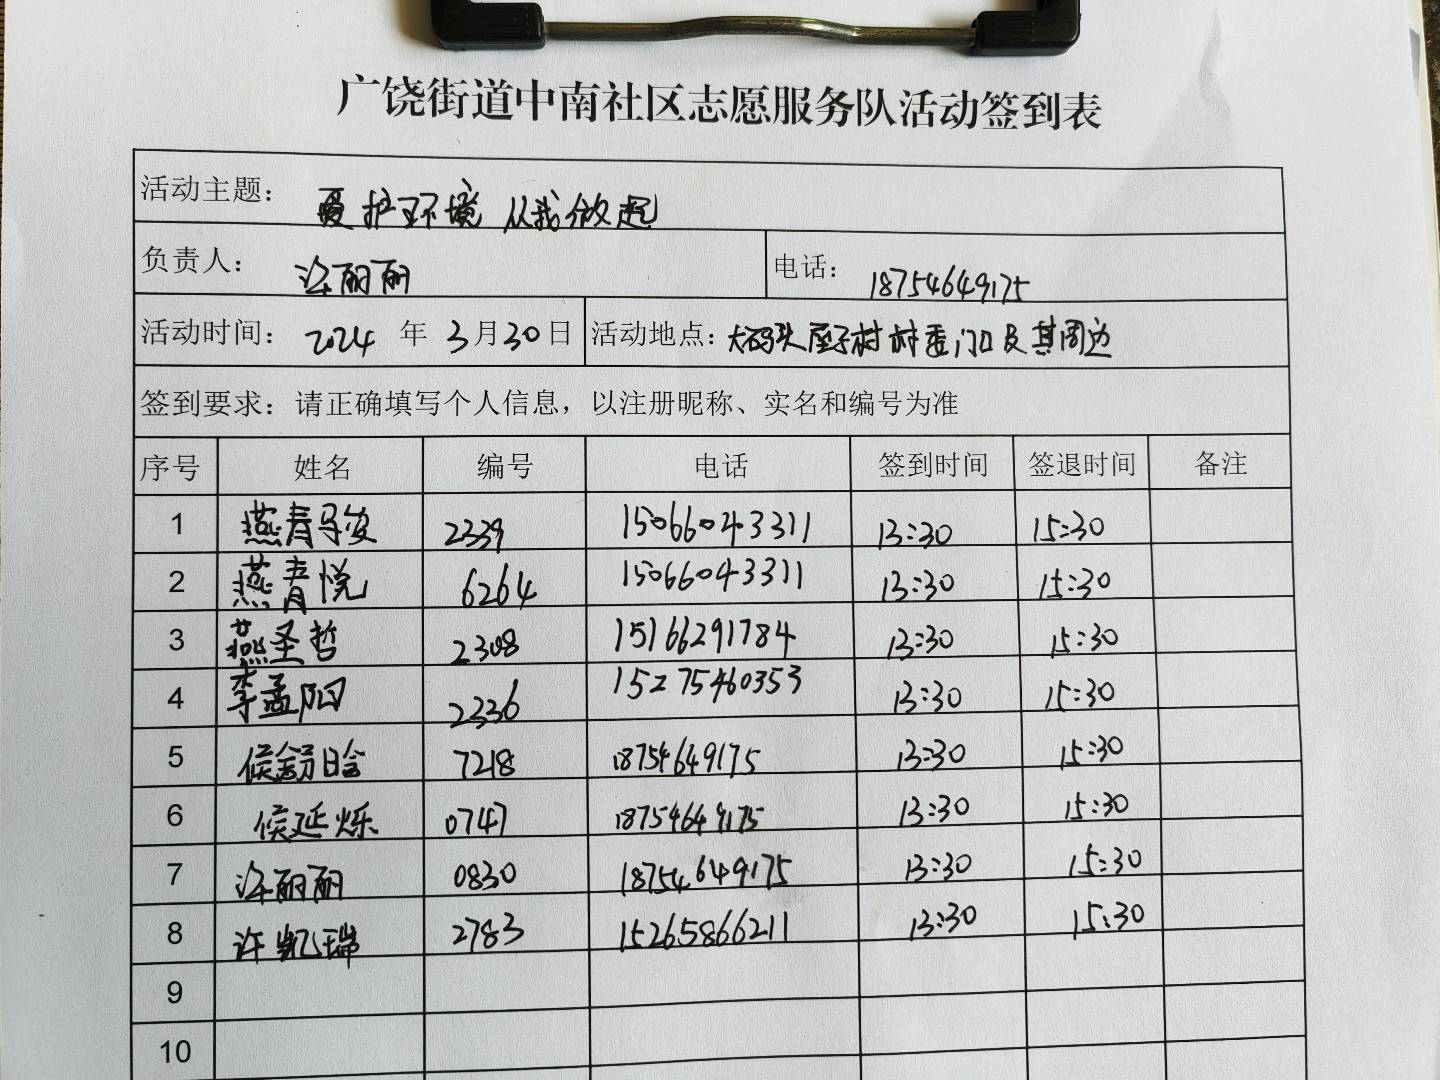 广饶街道中南社区志愿服务队活动签到表
活动主题： 爱护环境 从我做起
负责人： 许丽丽 电话： 18754649175
活动时间： 2024 年 3月30日 活动地点：大码头屋子村村委门口及其周边
签到要求：请正确填写个人信息，以注册昵称、实名和编号为准
序号 姓名 编号 电话 签到时间 签退时间 备注
1 燕青 2339 15066043311 13:30 15:30
2 燕青悦 6264 15066043311 13:30 15:30
3 燕圣哲 2308 15166291784 13:30 15:30
4 李孟阳 2336 15275460353 13:30 15:30
5 侯舒晗 7218 18754649175 13:30 15:30
6 侯延烁 0747 18754649175 13:30 15:30
7 许丽丽 0830 18754649175 13:30 15:30
8 许凯瑞 2783 15265866211 13:30 15:30
9
10